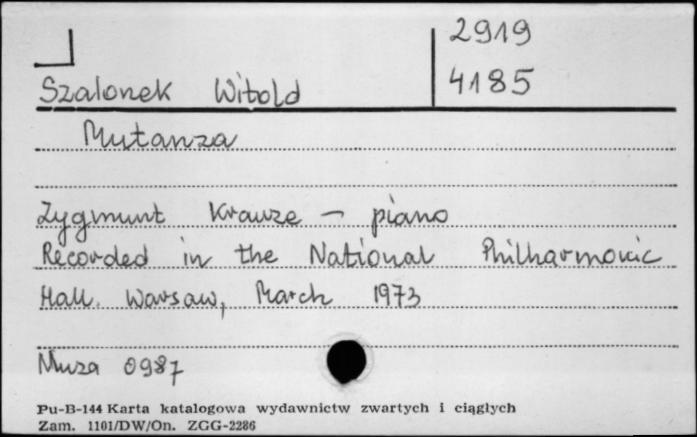 2919
Szalonek Witold 4185
Mutanza
Zygmunt Krauze - piano
Recorded in the National Philharmonic
Hall. Warsaw, March 1973
Muza 0987
Pu-B-144 Karta katalogowa wydawnictw zwartych i ciągłych
Zam. 1101/DW/On. ZGG-2286